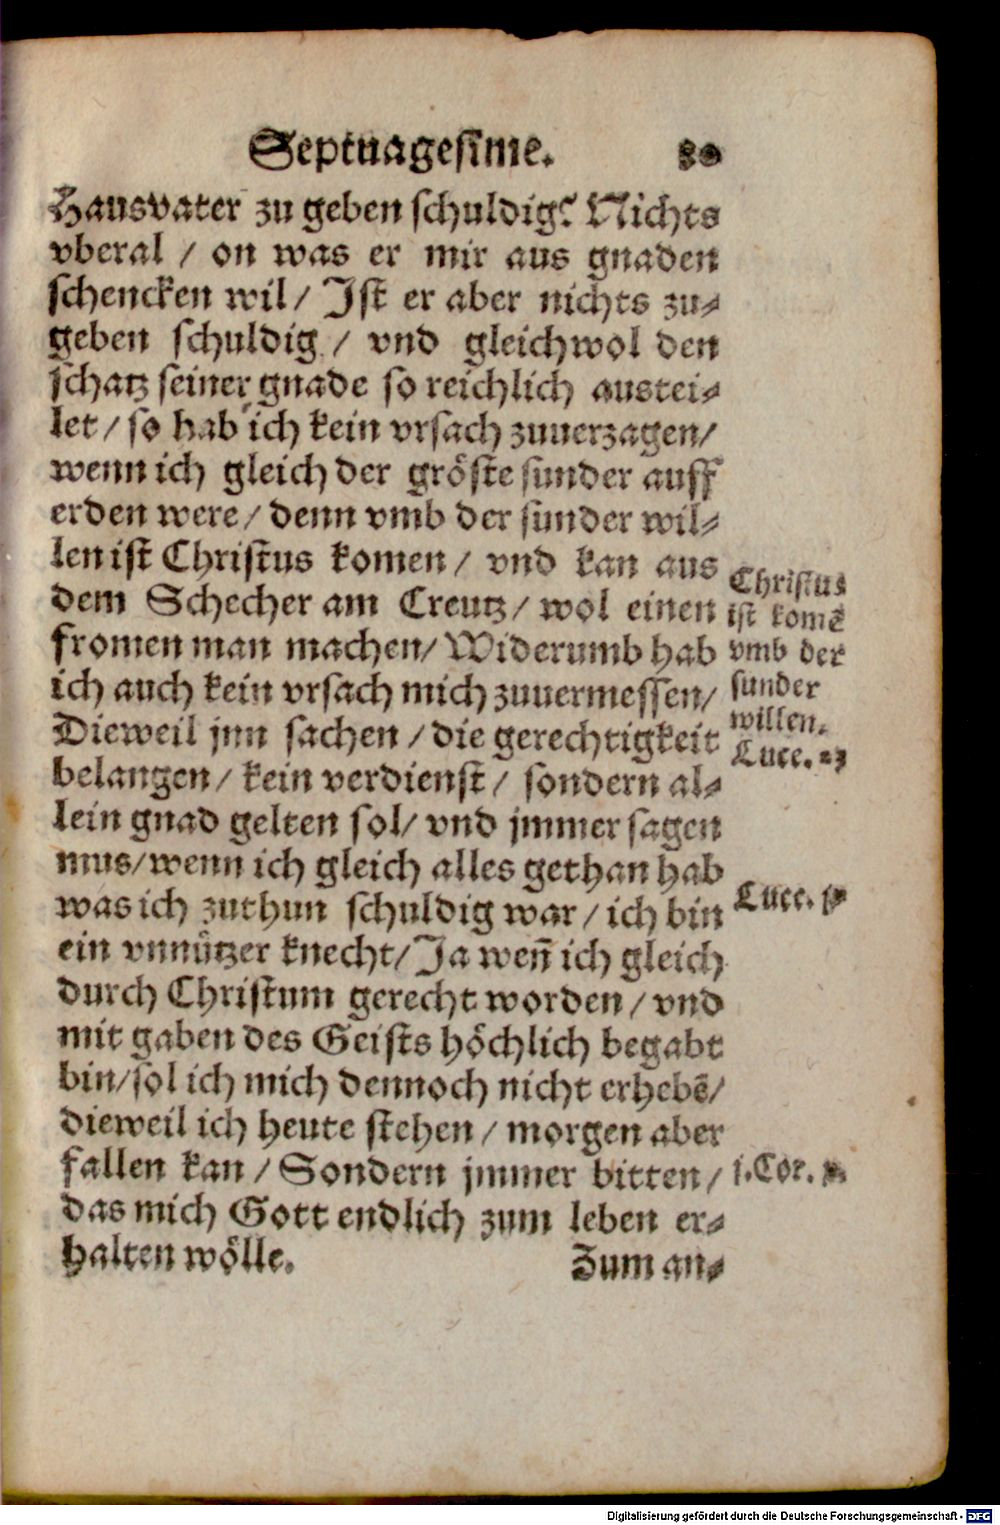 Septuagesime. 80
Hausvater zu geben schuldig? Nichts
vberal / on was er mir aus gnaden
schencken wil / Ist er aber nichts zu⸗
geben schuldig / vnd gleichwol den
schatz seiner gnade so reichlich austei⸗
let / so hab ich kein vrsach zuuerzagen /
wenn ich gleich der gröste sunder auff
erden were / denn vmb der sunder wil⸗
len ist Christus komen / vnd kan aus
dem Schecher am Creutz / wol einen
fromen man machen / Widerumb hab
ich auch kein vrsach mich zuuermessen /
Dieweil jnn sachen / die gerechtigkeit
belangen / kein verdienst / sondern al⸗
lein gnad gelten sol / vnd jmmer sagen
mus / wenn ich gleich alles gethan hab
was ich zuthun schuldig war / ich bin
ein vnnützer knecht / Ja weñ ich gleich
durch Christum gerecht worden / vnd
mit gaben des Geists höchlich begabt
bin / sol ich mich dennoch nicht erhebē /
dieweil ich heute stehen / morgen aber
fallen kan / Sondern jmmer bitten /
das mich Gott endlich zum leben er⸗
halten wölle.
Zum an⸗
Christus
ist komē
vmb der
sunder
willen.
Luce. 23
Luce.
1. Cor.
Digitalisierung gefördert durch die Deutsche Forschungsgemeinschaft - DFG